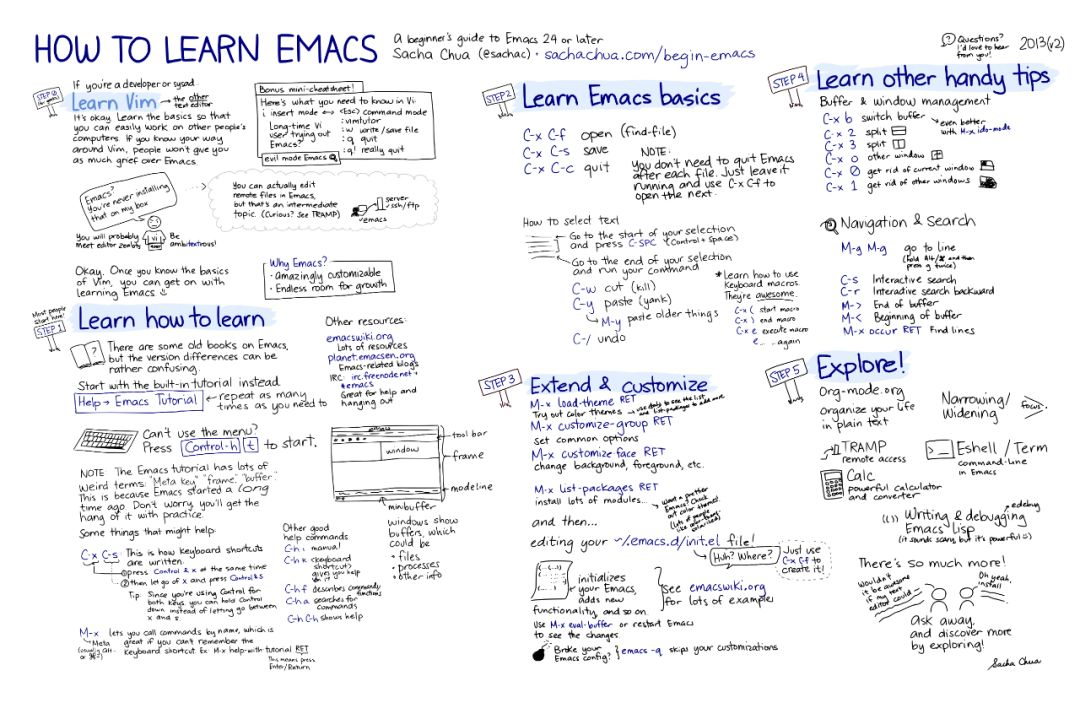 HOW TO LEARN EMACS
A beginner's guide to Emacs 24 or later
Sacha Chua (@sachac) · sachachua.com/begin-emacs
Questions?
I'd love to hear
from you!
2013(v2)
STEP 0
If you're a developer or sysad...
Learn Vim → the other
text editor
It's okay. Learn the basics so that
you can easily work on other people's
computers. If you know your way
around Vim, people won't give you
as much grief over Emacs.
Bonus mini-cheatsheet!
Here's what you need to know in Vi:
i insert mode ↔ <Esc> command mode
Long-time Vi
user trying out
Emacs?
:vimtutor
:w write/save file
:q quit
:q! really quit
evil mode Emacs
Emacs?
You're never installing
that on my box
You can actually edit
remote files in Emacs,
but that's an intermediate
topic. (Curious? See TRAMP)
server
ssh/ftp
emacs
You will probably
meet editor zombies
vi
Be
ambitextrous!
Okay. Once you know the basics
of Vim, you can get on with
learning Emacs
Why Emacs?
· amazingly customizable
· Endless room for growth
Most people
start here!
STEP 1
Learn how to learn
There are some old books on Emacs,
but the version differences can be
rather confusing.
Start with the built-in tutorial instead.
Help → Emacs Tutorial ← repeat as many
times as you need to
Can't use the menu?
Press Control-h t to start.
NOTE: The Emacs tutorial has lots of
weird terms: "Meta key," "frame," "buffer"...
This is because Emacs started a long
time ago. Don't worry, you'll get the
hang of it with practice.
Some things that might help:
C-x C-s This is how keyboard shortcuts
are written.
① press Control & x at the same time
② then let go of x and press Control & s
Tip: Since you're using Control for
both keys, you can hold Control
down instead of letting go between
x and s.
M-x lets you call commands by name, which is
great if you can't remember the
keyboard shortcut. Ex: M-x help-with-tutorial RET
Meta
(usually Alt-
or ⌘-)
This means press
Enter/Return
Other resources:
emacswiki.org
Lots of resources
planet.emacsen.org
Emacs-related blogs
IRC: irc.freenode.net
#emacs
Great for help and
hanging out
emacs
window
tool bar
frame
modeline
minibuffer
windows show
buffers, which
could be
· files
· processes
· other info
Other good
help commands
C-h i manual
C-h k (keyboard
shortcut)
gives you help
on it
C-h f describes commands/
functions
C-h a searches for
commands
C-h C-h shows help
STEP 2
Learn Emacs basics
C-x C-f open (find-file)
C-x C-s save
C-x C-c quit
NOTE:
You don't need to quit Emacs
after each file. Just leave it
running and use C-x C-f to
open the next.
How to select text
Go to the start of your selection
and press C-SPC (Control + Space)
Go to the end of your selection
and run your command
C-w cut (kill)
C-y paste (yank)
M-y paste older things
C-/ undo
* Learn how to use
Keyboard macros.
They're awesome.
C-x ( start macro
C-x ) end macro
C-x e execute macro
e... ...again
STEP 3
Extend & customize
M-x load-theme RET
Try out color themes.
M-x customize-group RET
Set common options
M-x customize-face RET
change background, foreground, etc.
M-x list-packages RET
install lots of modules...
Want a prettier
Emacs? Check
out color themes!
(Lots of people
like color-theme-
solarized)
and then...
editing your ~/.emacs.d/init.el file!
Huh? Where?
Just use
C-x C-f to
create it!
initializes
your Emacs,
adds new
functionality, and so on.
see emacswiki.org
for lots of examples
Use M-x eval-buffer or restart Emacs
to see the changes.
Broke your
Emacs config?
emacs -q skips your customizations
STEP 4
Learn other handy tips
Buffer & window management
C-x b switch buffer
even better
with M-x ido-mode
C-x 2 split
C-x 3 split
C-x o other window
C-x 0 get rid of current window
C-x 1 get rid of other windows
Navigation & Search
M-g M-g go to line
(hold Alt/⌘ and then
press g twice)
C-s Interactive search
C-r Interactive search backward
M-> End of buffer
M-< Beginning of buffer
M-x occur RET Find lines
STEP 5
Explore!
Org-mode.org
organize your life
in plain text
Narrowing/
Widening
focus
TRAMP
remote access
Eshell / Term
command-line
in Emacs
Calc
powerful calculator
and converter
edebug
Writing & debugging
Emacs Lisp
(it sounds scary, but it's powerful =)
There's so much more!
Wouldn't
it be awesome
if my text
editor could...
Oh yeah,
install
Ask away,
and discover more
by exploring!
Sacha Chua